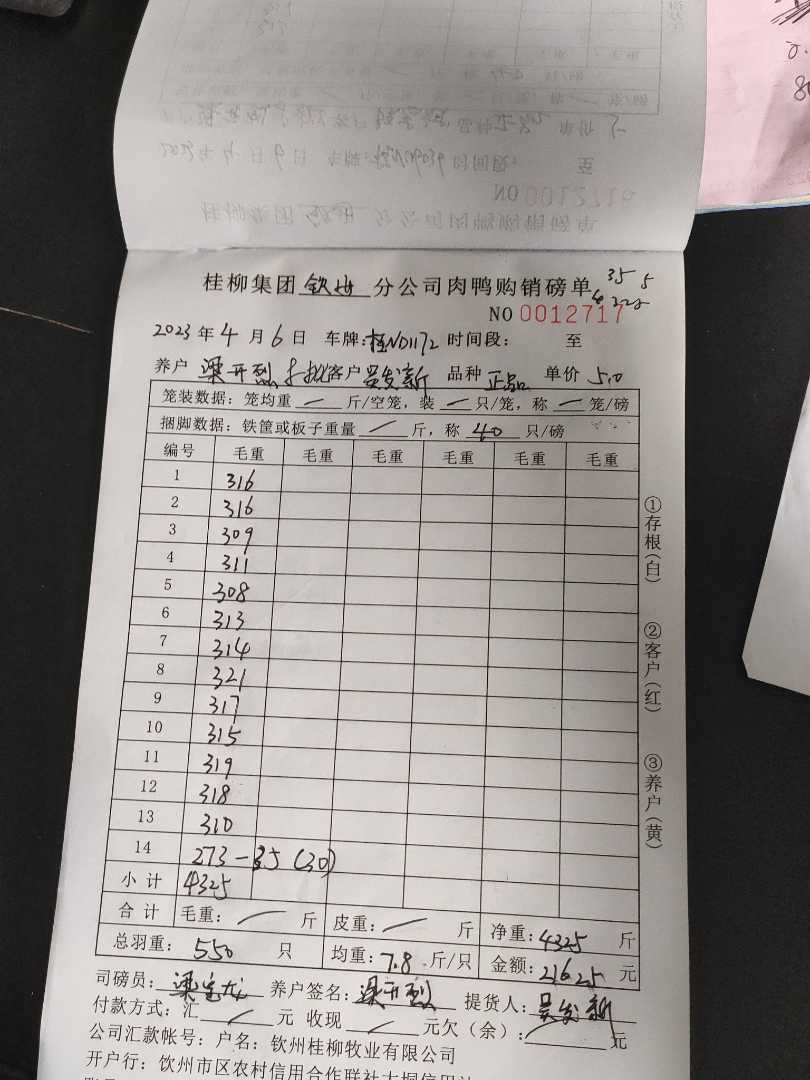 桂柳集团 钦州 分公司肉鸭购销磅单
NO 0012717
2023 年 4 月 6 日 车牌: 桂ND1172 时间段: 至
养户 梁开烈 客户 吴发新 品种 正品 单价 5.0
笼装数据: 笼均重 — 斤/空笼, 装 — 只/笼, 称 — 笼/磅
捆脚数据: 铁筐或板子重量 — 斤, 称 40 只/磅
编号 毛重 毛重 毛重 毛重 毛重 毛重
1 316
2 316
3 309
4 311
5 308
6 313
7 314
8 321
9 317
10 315
11 319
12 318
13 310
14 273 - 35 (30)
小计 4325
合计 毛重: — 斤 皮重: — 斤 净重: 4325 斤
总羽重: 550 只 均重: 7.8 斤/只 金额: 21625 元
司磅员: 养户签名: 梁开烈 提货人: 吴发新
付款方式: 汇 — 元 收现 — 元欠(余): — 元
公司汇款帐号: 户名: 钦州桂柳牧业有限公司
开户行: 钦州市区农村信用合作联社大垌信用社
①存根(白) ②客户(红) ③养户(黄)